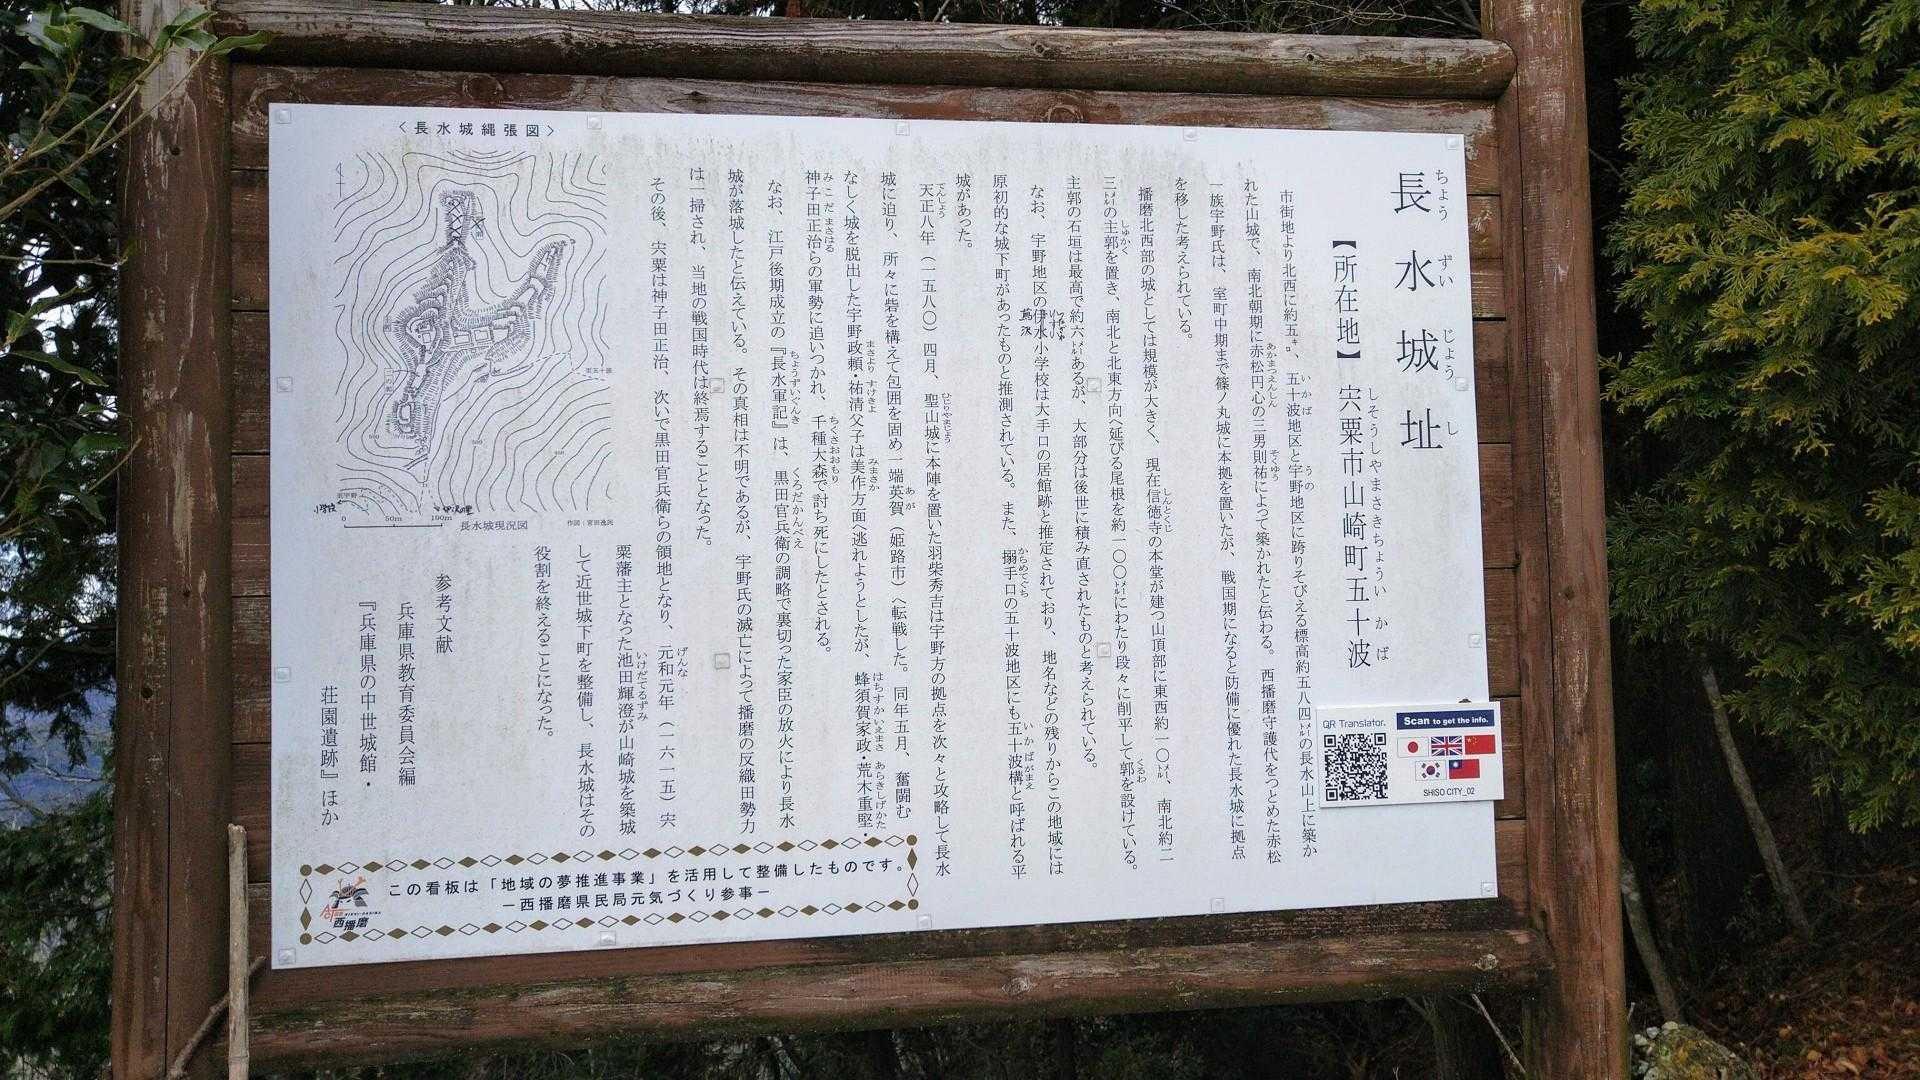 長水城址
ちょうずいじょうし
【所在地】 宍粟市山崎町五十波
しそうしやまさきちょういかば
市街地より北西に約五㌔、五十波地区と宇野地区に跨りそびえる標高約五八四㍍の長水山上に築か
れた山城で、南北朝期に赤松円心の三男則祐によって築かれたと伝わる。西播磨守護代をつとめた赤松
一族宇野氏は、室町中期まで篠ノ丸城に本拠を置いたが、戦国期になると防備に優れた長水城に拠点
を移した考えられている。
播磨北西部の城としては規模が大きく、現在信徳寺の本堂が建つ山頂部に東西約一〇㍍、南北約二
三㍍の主郭を置き、南北と北東方向へ延びる尾根を約一〇〇㍍にわたり段々に削平して郭を設けている。
主郭の石垣は最高で約六㍍あるが、大部分は後世に積み直されたものと考えられている。
なお、宇野地区の伊水小学校は大手口の居館跡と推定されており、地名などの残りからこの地域には
原初的な城下町があったものと推測されている。また、搦手口の五十波地区にも五十波構と呼ばれる平
城があった。
天正八年(一五八〇)四月、聖山城に本陣を置いた羽柴秀吉は宇野方の拠点を次々と攻略して長水
城に迫り、所々に砦を構えて包囲を固め一端英賀(姫路市)へ転戦した。同年五月、奮闘む
なしく城を脱出した宇野政頼・祐清父子は美作方面へ逃れようとしたが、蜂須賀家政・荒木重堅・
神子田正治らの軍勢に追いつかれ、千種大森で討ち死にしたとされる。
なお、江戸後期成立の『長水軍記』は、黒田官兵衛の調略で裏切った家臣の放火により長水
城が落城したと伝えている。その真相は不明であるが、宇野氏の滅亡によって播磨の反織田勢力
は一掃され、当地の戦国時代は終焉することとなった。
その後、宍粟は神子田正治、次いで黒田官兵衛らの領地となり、元和元年(一六一五)宍
粟藩主となった池田輝澄が山崎城を築城
して近世城下町を整備し、長水城はその
役割を終えることになった。
参考文献
兵庫県教育委員会編
『兵庫県の中世城館・
荘園遺跡』ほか
<長水城縄張図>
0 50m 100m
長水城現況図
作図:宮田逸民
QR Translator.
Scan to get the info.
SHISO CITY_02
この看板は「地域の夢推進事業」を活用して整備したものです。
ー西播磨県民局元気づくり参事ー
西播磨